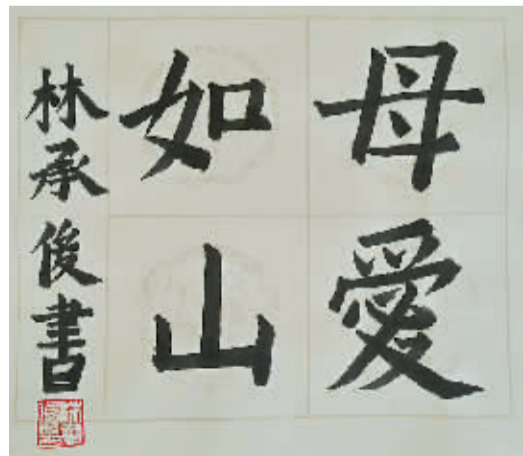 母愛
如山
林承俊書